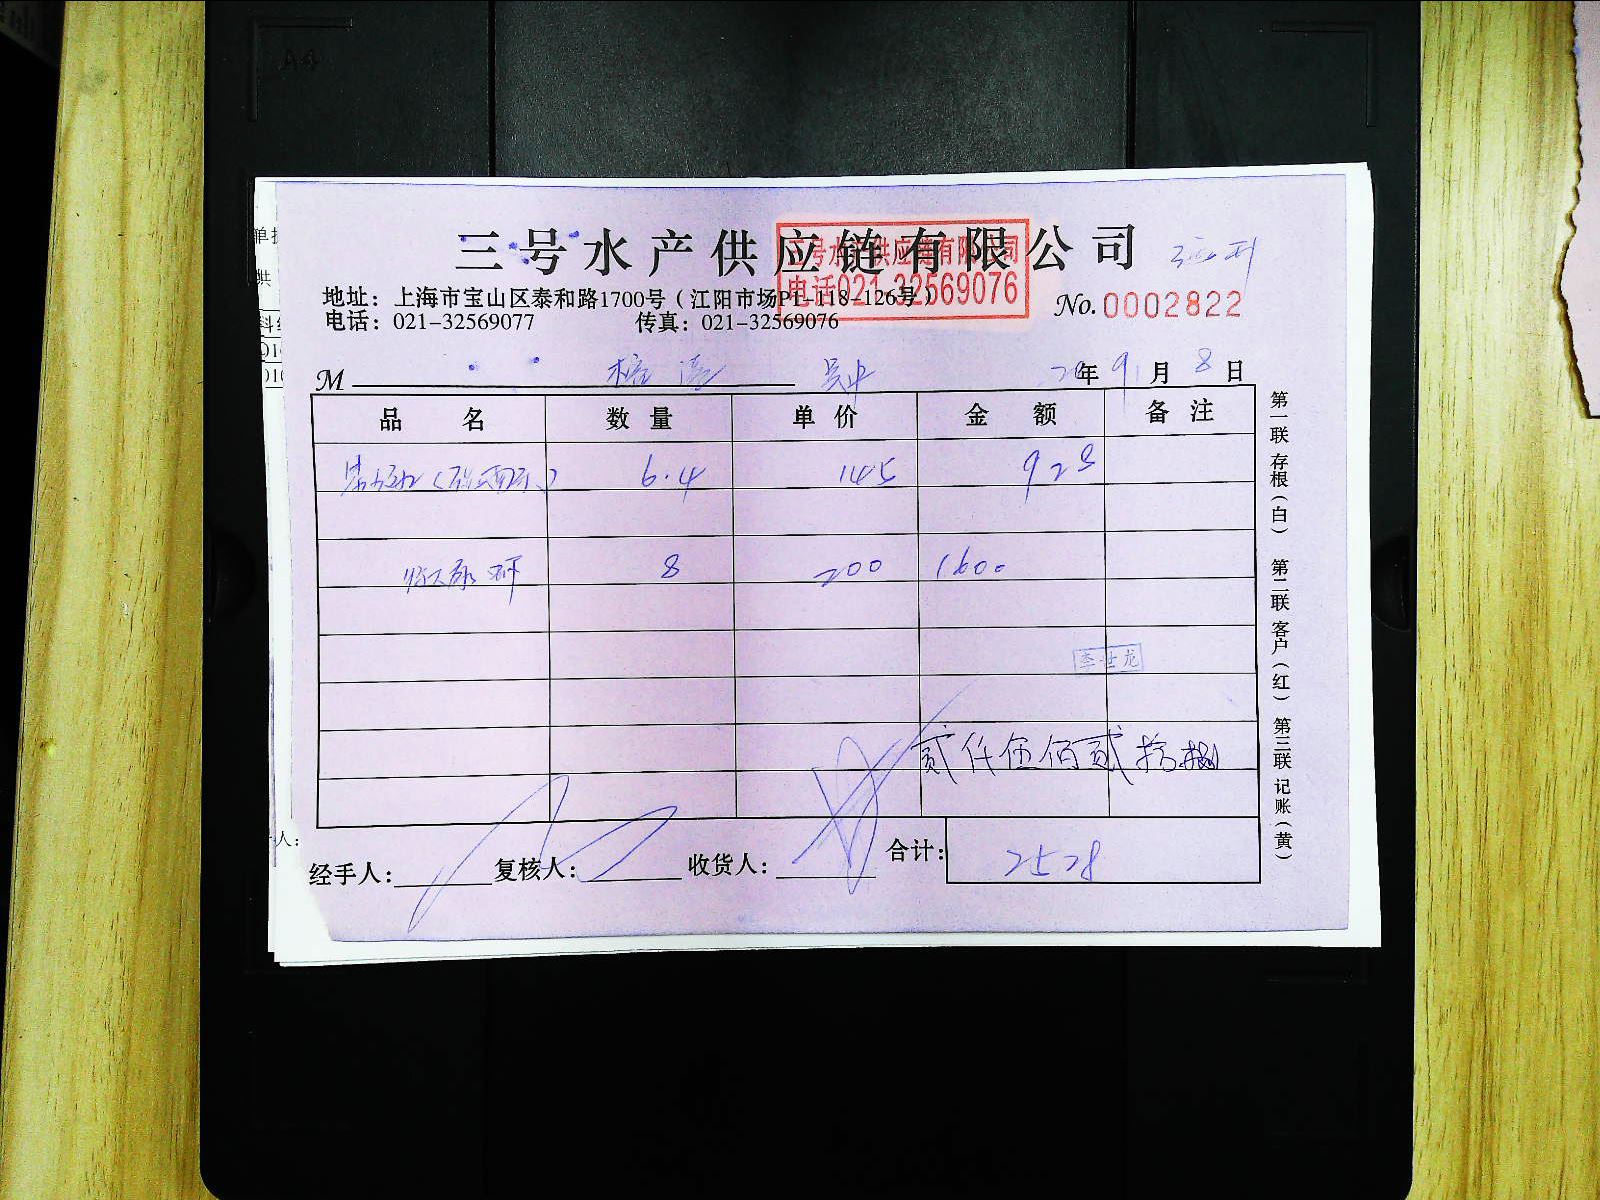 三号水产供应链有限公司
三号水产供应链有限公司
电话021-32569076
地址：上海市宝山区泰和路1700号（江阳市场P1-118-126号）
电话：021-32569077 传真：021-32569076
No.0002822
M 20年9月8日
品名 数量 单价 金额 备注
6.4 145 928
8 200 1600
李世龙
贰仟伍佰贰拾捌
经手人： 复核人： 收货人： 合计：2528
第一联 存根（白） 第二联 客户（红） 第三联 记账（黄）